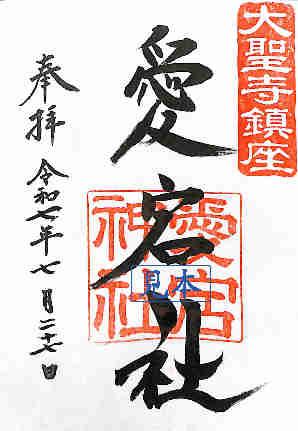 大聖寺鎮座
愛宕社
愛宕
神社
見本
奉拝 令和七年七月二十七日